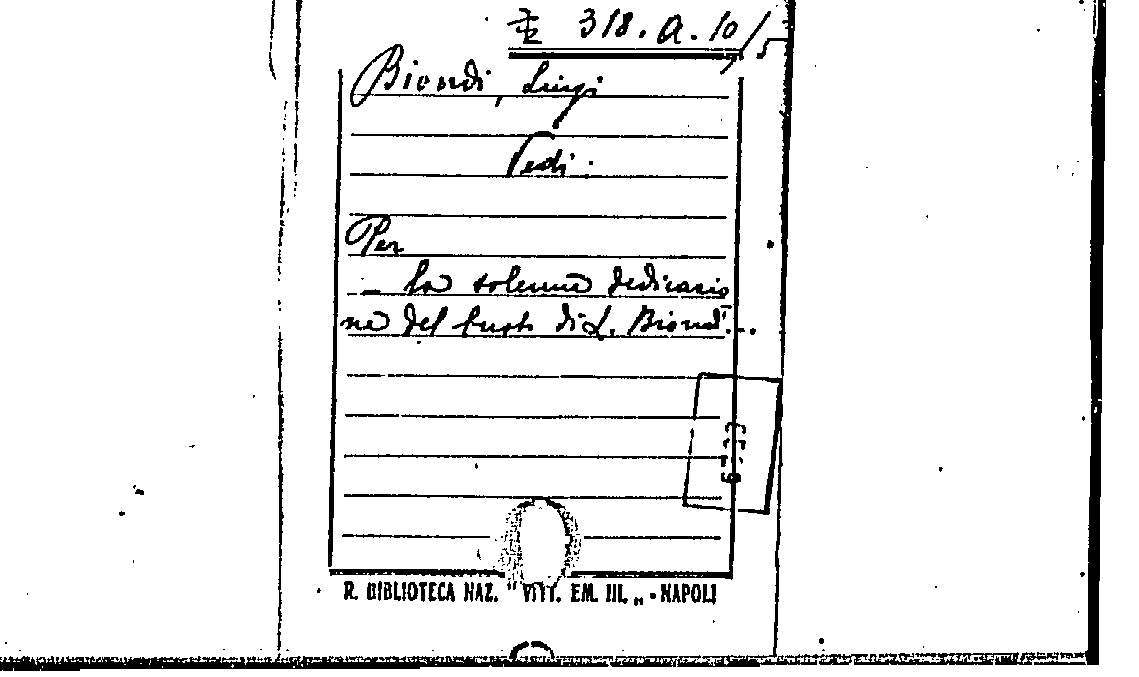 318. A. 10/5
Biondi, Luigi
Vedi:
Per
- la solenne dedicazio
ne del busto di L. Biondi...
R. BIBLIOTECA NAZ. "VITT. EM. III. „ - NAPOLI